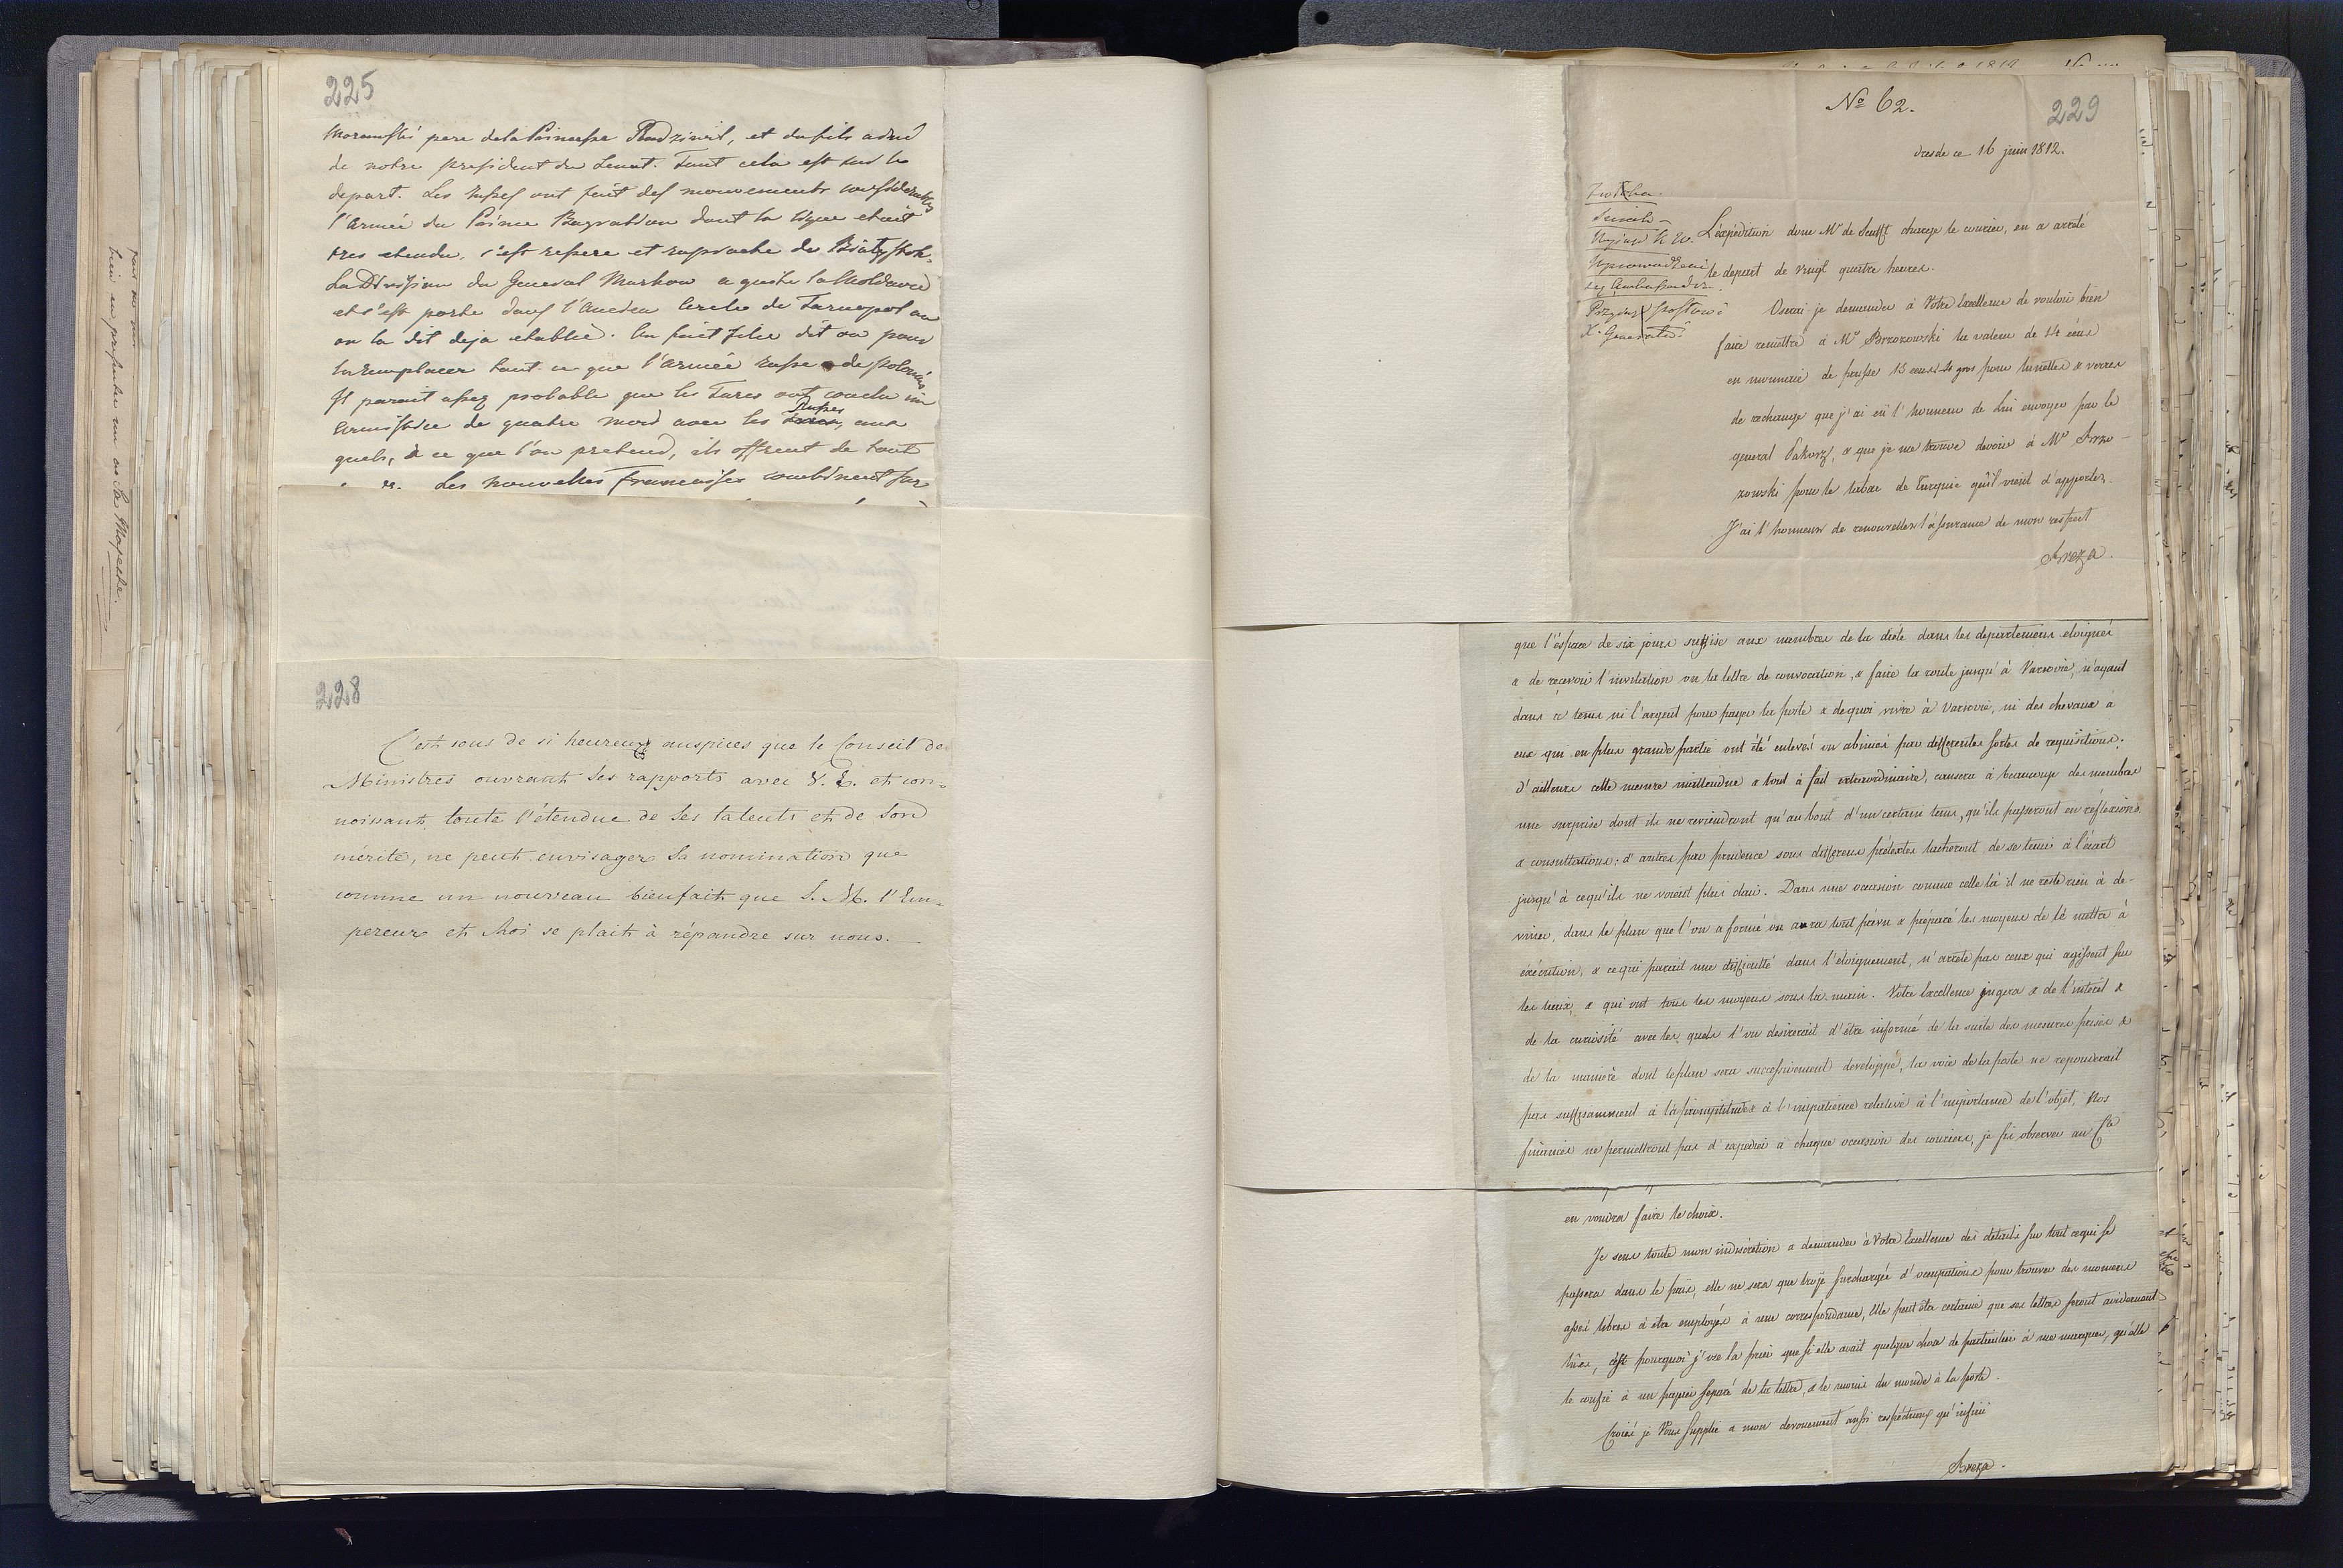 225
pere de la Princesse Radzivil, et du fils ainé
de notre president du Senat. Tout cela est sur le
depart. Les Russes ont fait des mouvements considerables
l'Armée du Prince Bagration dont la ligne etait
tres etendue, s'est resseré et raproché de Bialystok.
La Division du General Markow a quité la Moldavie
et s'est porté dans l'Ancien Cercle de Tarnopol ou
on la dit deja etablie. On fait filer dit on pour
la remplacer tout ce que l'armée russe de polonais
Il parait assez probable que les Turcs ont conclu un
Armistice de quatre mois avec les Russes, aux
quels, à ce que l'on pretend, ils offrent de tout
Les nouvelles francaises combinent sur
pour au moin
bien en presenter un au Sa Majesté.
228
C'est sous de si heureux auspices que le Conseil de
Ministres ouvrant ses rapports avec V. E. et con-
noissant toute l'étendue de ses talents et de son
mérite, ne peut envisager sa nomination que
comme un nouveau bienfait que S. M. l'Em-
pereur et Roi se plait à répandre sur nous.
No 62.
229
dresde ce 16 juin 1812.
L'expédition dont Mr de Senfft charge le courier, en a arrêté
le depart de vingt quatre heures.
Oserai-je demander à Votre Excellence de vouloir bien
faire remettre à Mr Brzozowski la valeur de 14 écus
en monnaie de prusse 13 écus 4 gros pour lunettes & verres
de rechange que j'ai eû l'honneur de Lui envoyer par le
general Pakosz, & que je me trouve devoir à Mr Brzo-
zowski pour le tabac de Turquie qu'il vient d'apporter.
J'ai l'honneur de renouveller l'assurance de mon respect
Breza.
que l'espace de six jours suffise aux membres de la diète dans les departemens eloignés
& de reçevoir l'invitation ou la lettre de convocation, & faire la route jusqu'à Varsovie, n'ayant
dans ce tems ni l'argent pour payer la poste & dequoi vivre à Varsovie, ni des chevaux à
eux qui en plus grande partie ont été enlevés ou abimés par differentes sortes de requisitions;
d'ailleurs cette mesure inattendue & tout à fait extraordinaire, causera à beaucoup des membres
une surprise dont ils ne reviendront qu'au bout d'un certain tems, qu'ils passeront en réflexions
& consultations; d'autres par prudence sous differens prétextes tacheront de se tenir à l'écart
jusqu'à cequ'ils ne voient plus clair. Dans une occasion comme celle là il ne reste rien à de-
viner, dans le plan que l'on a formé on aura tout prévu & préparé les moyens de le mettre à
éxécution, & cequi parait une difficulté dans l'éloignement, n'arrete pas ceux qui agissent sur
les lieux, & qui ont tous les moyens sous la main. Votre Excellence jugera & de l'intérêt &
de la curiosité avec les quels l'on desirerait d'être informé de la suite des mesures prises &
de la manière dont le plan sera successivement developpé, la voie de la poste ne repondrait
pas suffisamment à la promptitude & à l'impatience relative à l'importance de l'objet, Nos
finances ne permettront pas d'expedier à chaque occasion des couriers, je fis observer au Cte
en voudra faire le choix.
Je sens toute mon indiscrétion a demander à Votre Excellence des détails sur tout cequi se
passera dans le païs, elle ne sera que trop surchargée d'occupations pour trouver des momens
assés libres à être employés à une correspondance, Elle peut être certaine que ses lettres seront avidement
lües, c'est pourquoi j'ose la prier que si elle avait quelque chose de particulier à me marquer, qu'elle
le confie à un papier separé de la lettre, & le moins du monde à la poste.
Croiés je Vous supplie a mon devouement aussi respectueux qu'infini
Breza.